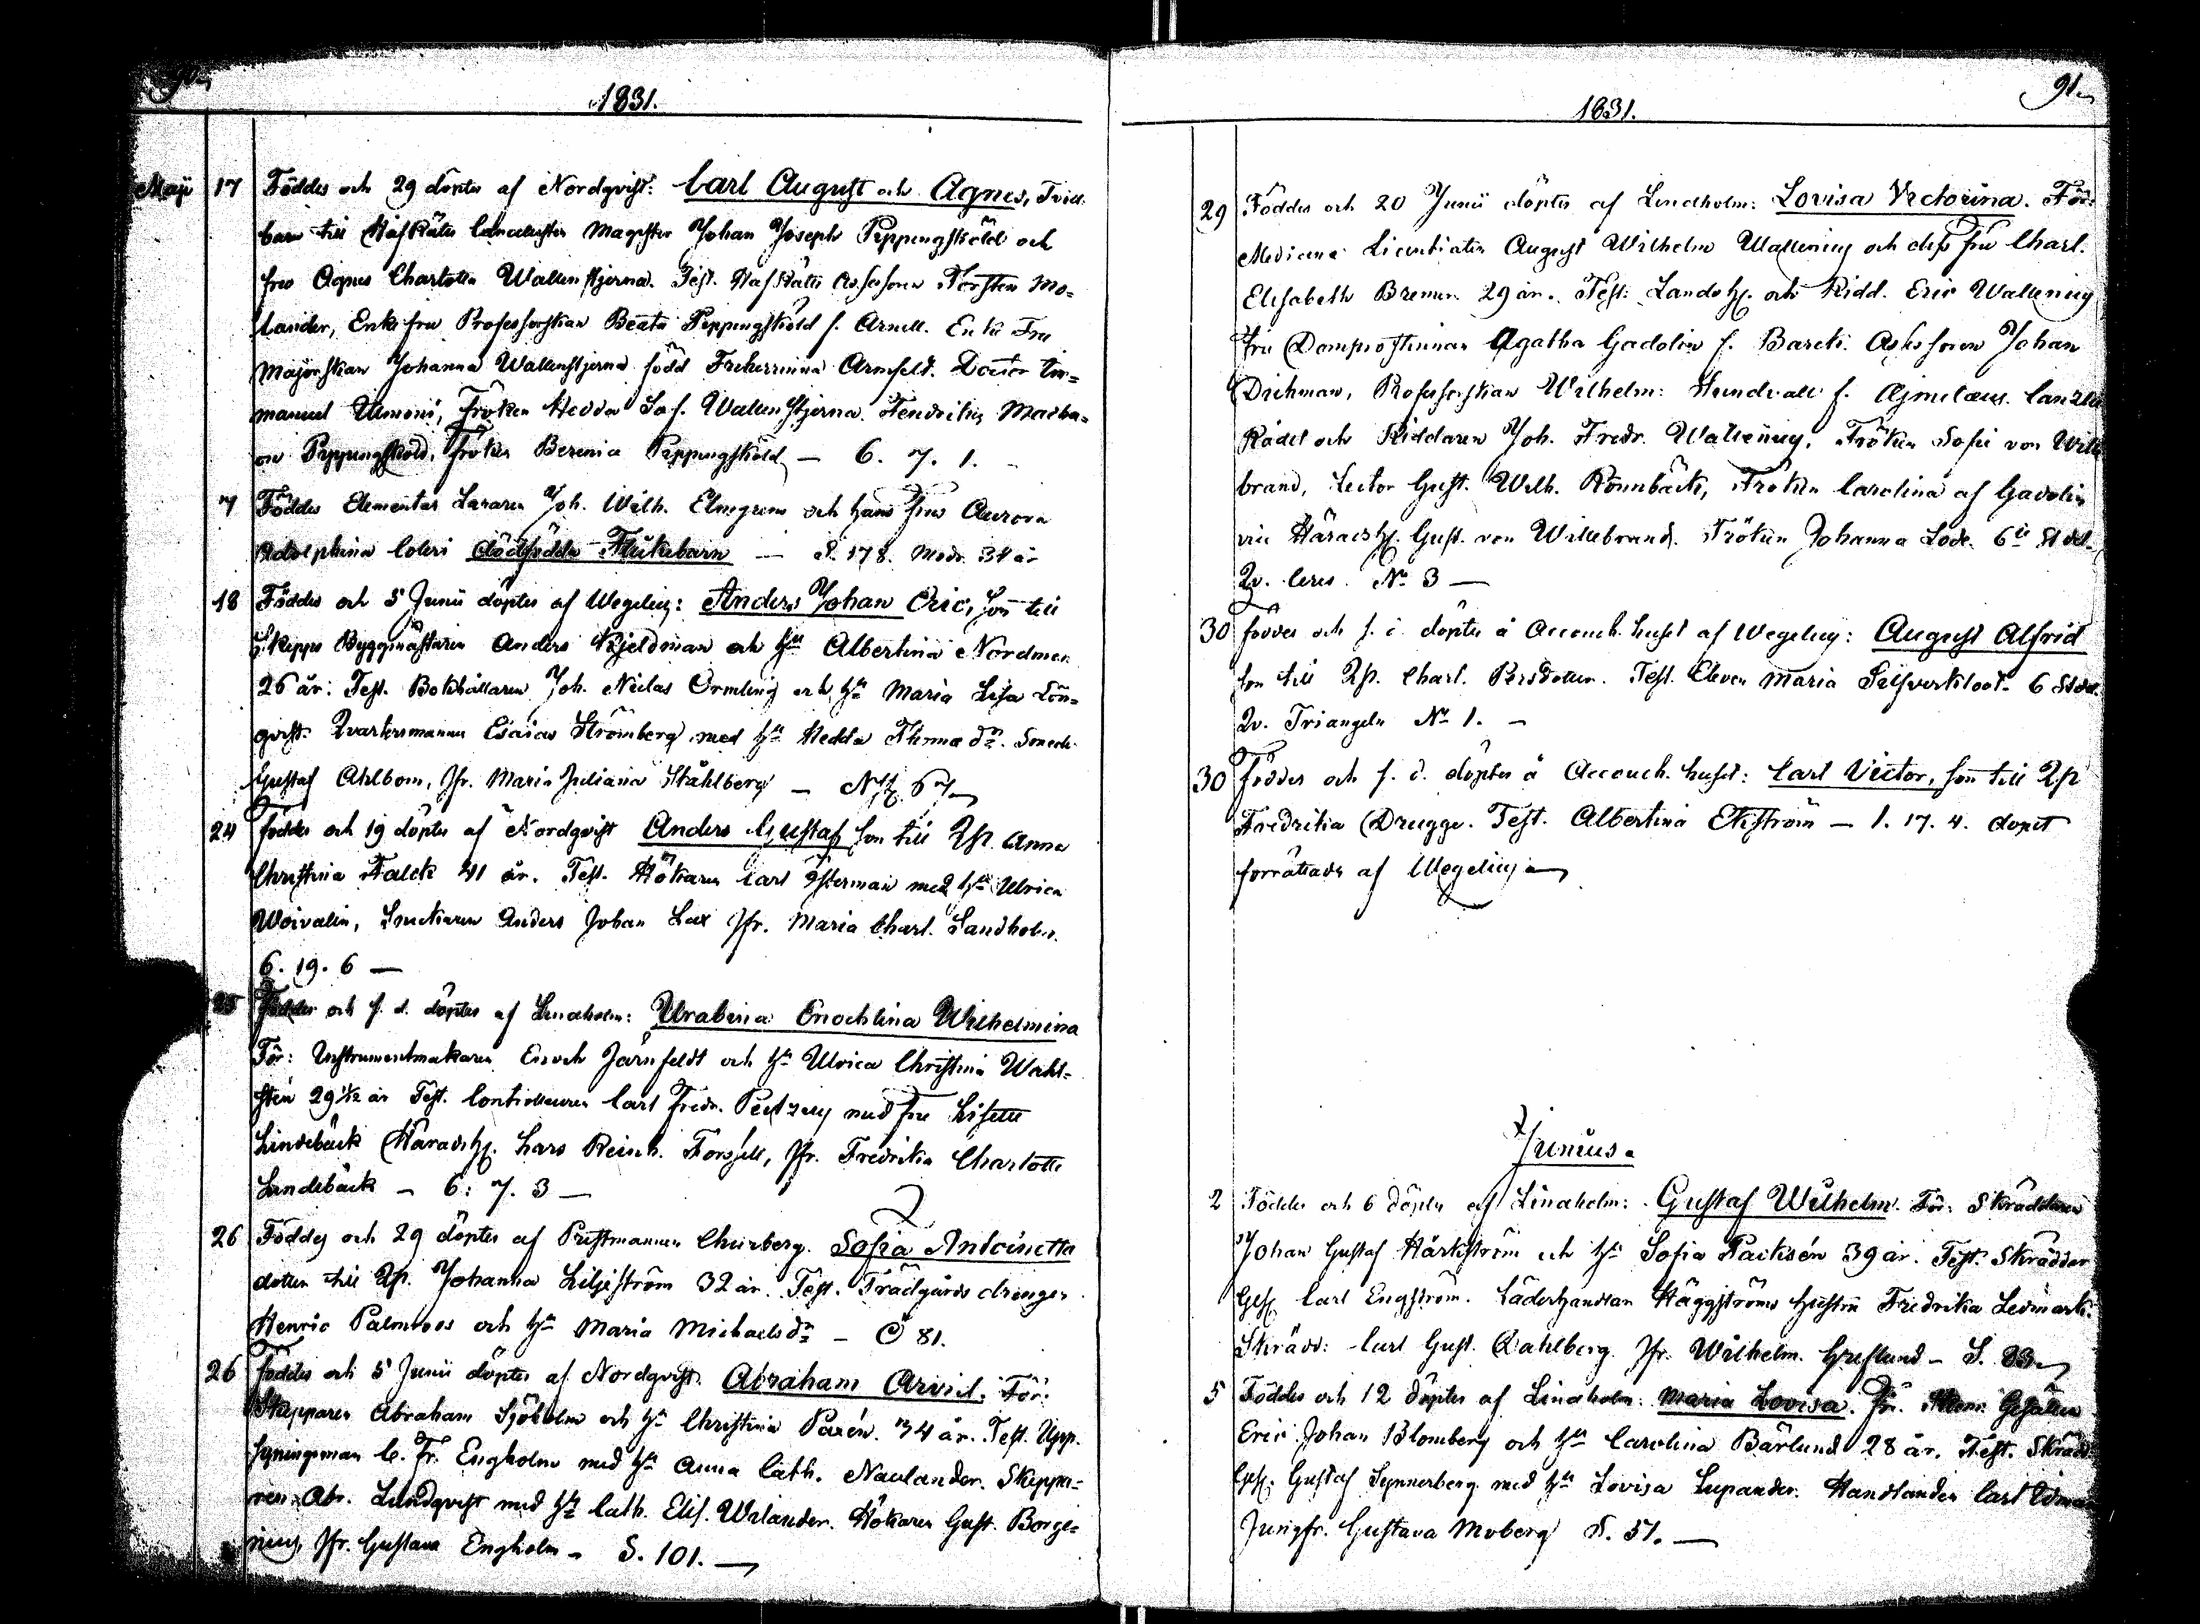 90
1831.
Maji 17 Föddes och 29 döptes af Nordqvist: Carl August och Agnes, Tvill-
barn till HofRätts Cancellisten Magister Johan Joseph Pippingsköld och
fru Agnes Charlotta Wallenstjerna. Test. HofRätts Assessoren Torsten Mo-
lander, Enkefru Professorskan Beata Pippingsköld f. Arnell. Enke Fru
Majorskan Johanna Wallenstjerna född Friherrinna Armfeldt. Doctor Im-
manuel Ilmoni, Fröken Hedda Sof. Wallenstjerna. Fendriken
Pippingsköld, Fröken Berenia Pippingsköld — 6. 7. 1.
7 Föddes Elementar Läraren Joh. Wilh. Elmgrens och hans frus Aurora
Adolphina Coleri dödfödda Flickebarn — S. 178. Modr. 34 år
18 Föddes och 5 Junii döptes af Wegelius: Anders Johan Eric, son till
Skepps Byggmästaren Anders Kjeldman och hu Albertina Nordman
26 år. Test. Bokhållaren Joh. Niclas Ormling och hu Maria Lisa Lön-
qvist. Qvartersmannen Esaias Strömberg med hu Hedda Thomædr. Snick.
Gustaf Ahlbom, Jfr. Maria Juliana Ståhlberg — 67
24 föddes och 19 döptes af Nordqvist Anders Gustaf son till Qp. Anna
Christina Falck 41 år. Test. Hökaren Carl Österman med hu Ulrica
Woivalin, Snickaren Anders Johan Lax Jfr. Maria Charl. Sandholm.
6. 19. 6 —
25 Föddes och s. d. döptes af Lindholm: Uraberia Enochlina Wilhelmina
För: Instrumentmakaren Enoch Järnfeldt och hu Ulrica Christina Wahl-
sten 29 1/2 år Test. Controlleuren Carl Fredr. Peitzius med fru Lisette
Lindebäck Häradshöf. Lars Reinh. Forsell, Jfr. Fredrika Charlotte
Lindebäck — 6: 7. 3 —
26 Föddes och 29 döptes af Prestmannen Churberg. Sofia Antoinetta
dotter till Qp. Johanna Liljeström 32 år. Test. Trädgårds drengen
Henric Palmroos och hu Maria Michaelsdr — C 81.
26 föddes och 5 Junii döptes af Nordqvist. Abraham Arvid. För:
Skepparen Abraham Sjöholm och hu Christina Paxén. 34 år. Test. Upp-
syningsman C. Fr. Engholm med hu Anna Cath. Naulander. Skeppa-
ren Abr. Lindqvist med hu Cath. Elis. Welander. Hökaren Gust. Borge-
nius, Jfr. Gustava Engholm — S. 101. —
91
1831.
29 Föddes och 20 Junii döptes af Lindholm: Lovisa Victorina. För:
Medicine Licentiaten August Wilhelm Wallenius och dess fru Charl.
Elisabeth Bremer 29 år. Test: Landshöf. och Ridd. Eric Wallenius
fru Domprostinnan Agatha Gadolin f. Barck. Assessoren Johan
Dickman, Professorskan Wilhelm: Sundvall f. Ajmelæus. Canzlie
Rådet och Riddaren Joh. Fredr. Wallenius. Fröken Sofie von Wille
brand, Lector Gust. Wilh. Rönnbäck, Fröken Carolina af Gadolin
vice Häradshöf. Gust. von Willebrand. Fröken Johanna Lode. 6te Stdel.
Qv. Ceres. No 3 —
30 föddes och s. d. döptes å Accouch. huset af Wegelius: August Alfrid
son till Qp. Charl. Persdotter. Test. Eleven Maria Silfverkloot. 6 Stdel.
Qv. Triangeln No 1. —
30 föddes och s. d. döptes å Accouch. huset: Carl Victor, son till Qp
Fredrika Drugge. Test. Albertina Ekström — 1. 17. 4. dopet
förrättade af Wegelius —
Junius.
2 Föddes och 6 döptes af Lindholm: Gustaf Wilhelm. För: Skräddaren
Johan Gustaf Härkström och hu Sofia Packsén 39 år. Test. Skräddar
Ges. Carl Engström. Läderhandlar Häggströms hustru Fredrika Ledmark.
Skrädd: Carl Gust. Dahlberg. Jfr. Wilhelm. Gustlund — S. 83 —
5 Föddes och 12 döptes af Lindholm: Maria Lovisa. För. Gesällen
Eric Johan Blomberg och hu Carolina Bärlund 28 år. Test. Skrädd-
Ges. Gustaf Synnerberg med hu Lovisa Lupander. Handlanden Carl Edman
Jungfr. Gustava Moberg N. 57. —